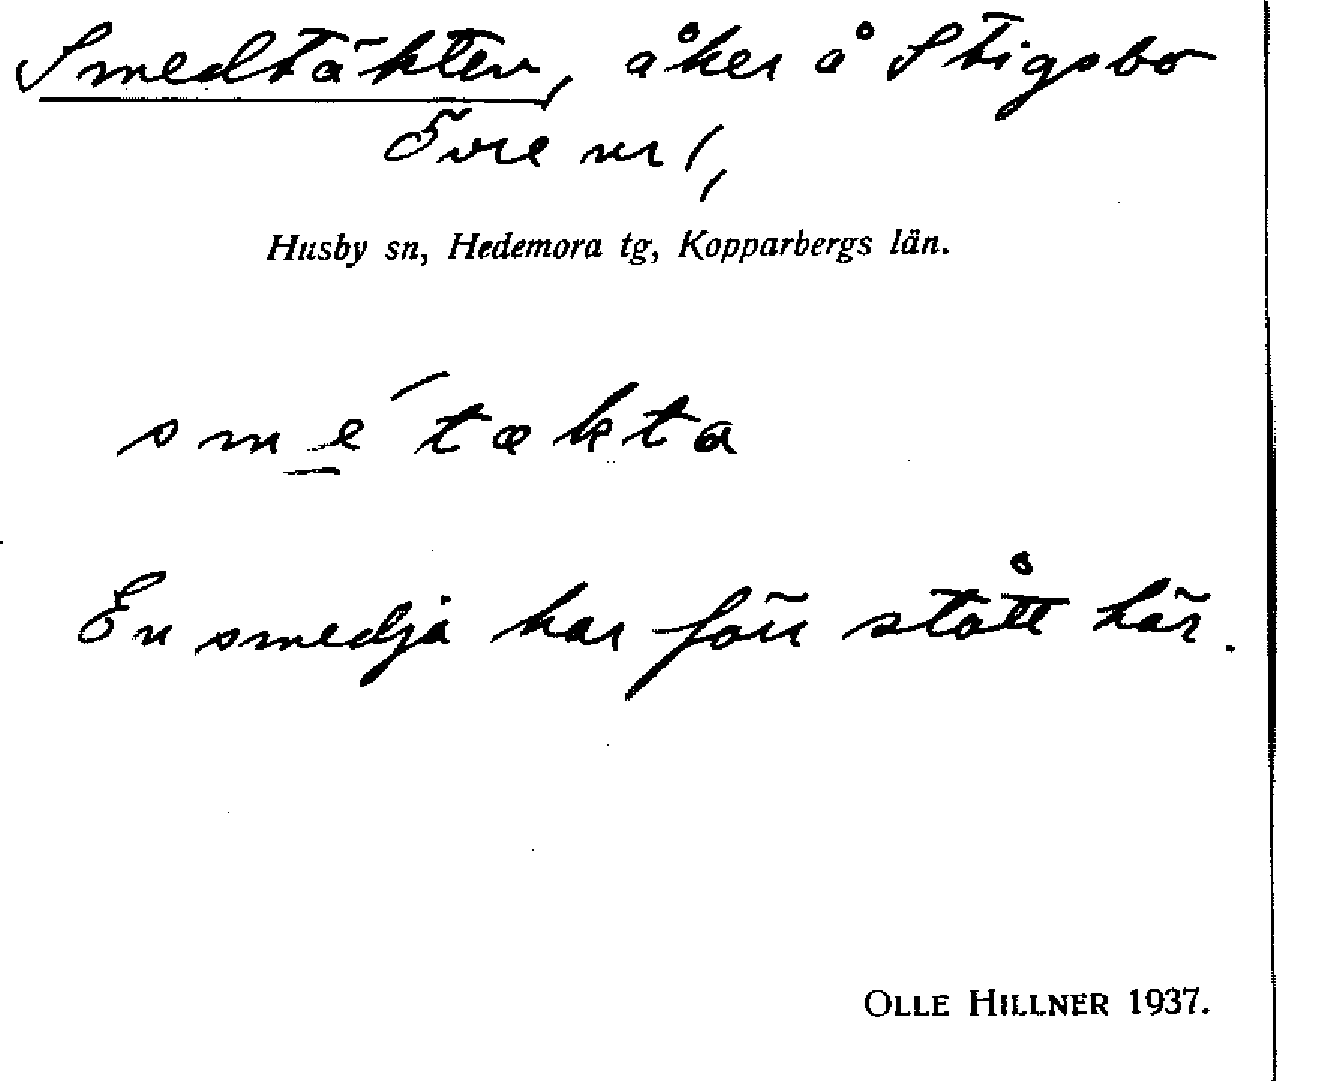 Smedtäkten, åker å Stigsbo
Övre nr 1,
Husby sn, Hedemora tg, Kopparbergs län.
sme̲´tækta
En smedja har förr stått här.
OLLE HILLNER 1937.